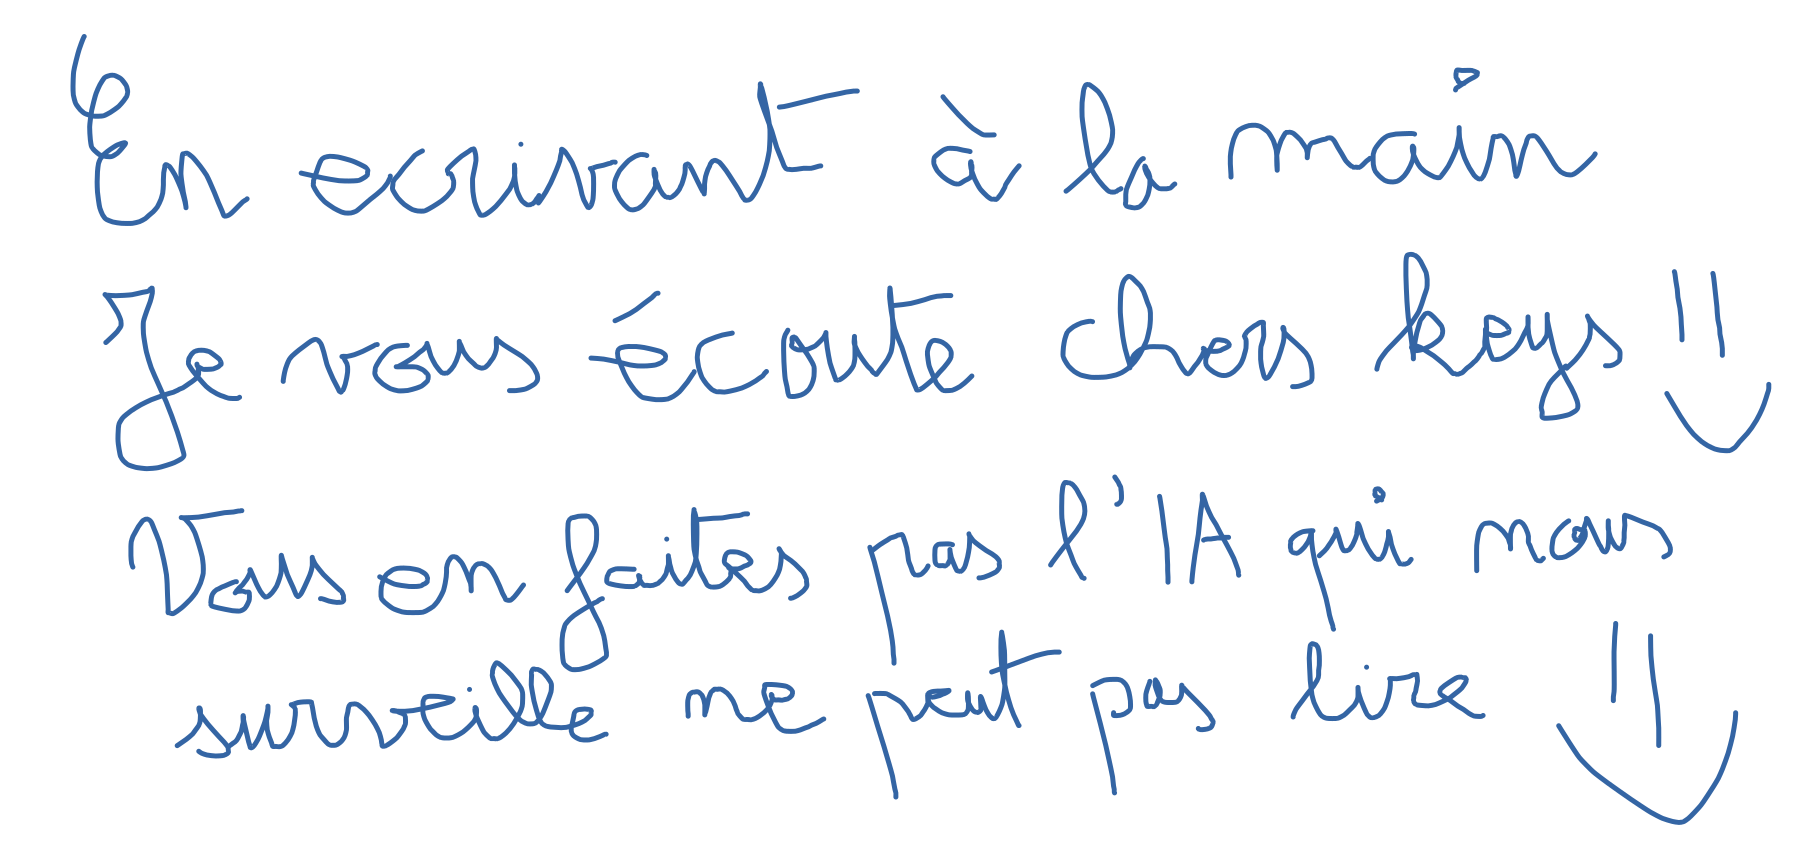 En ecrivant à la main
Je vous écoute chers keys
Vous en faites pas l'IA qui nous
surveille ne peut pas lire